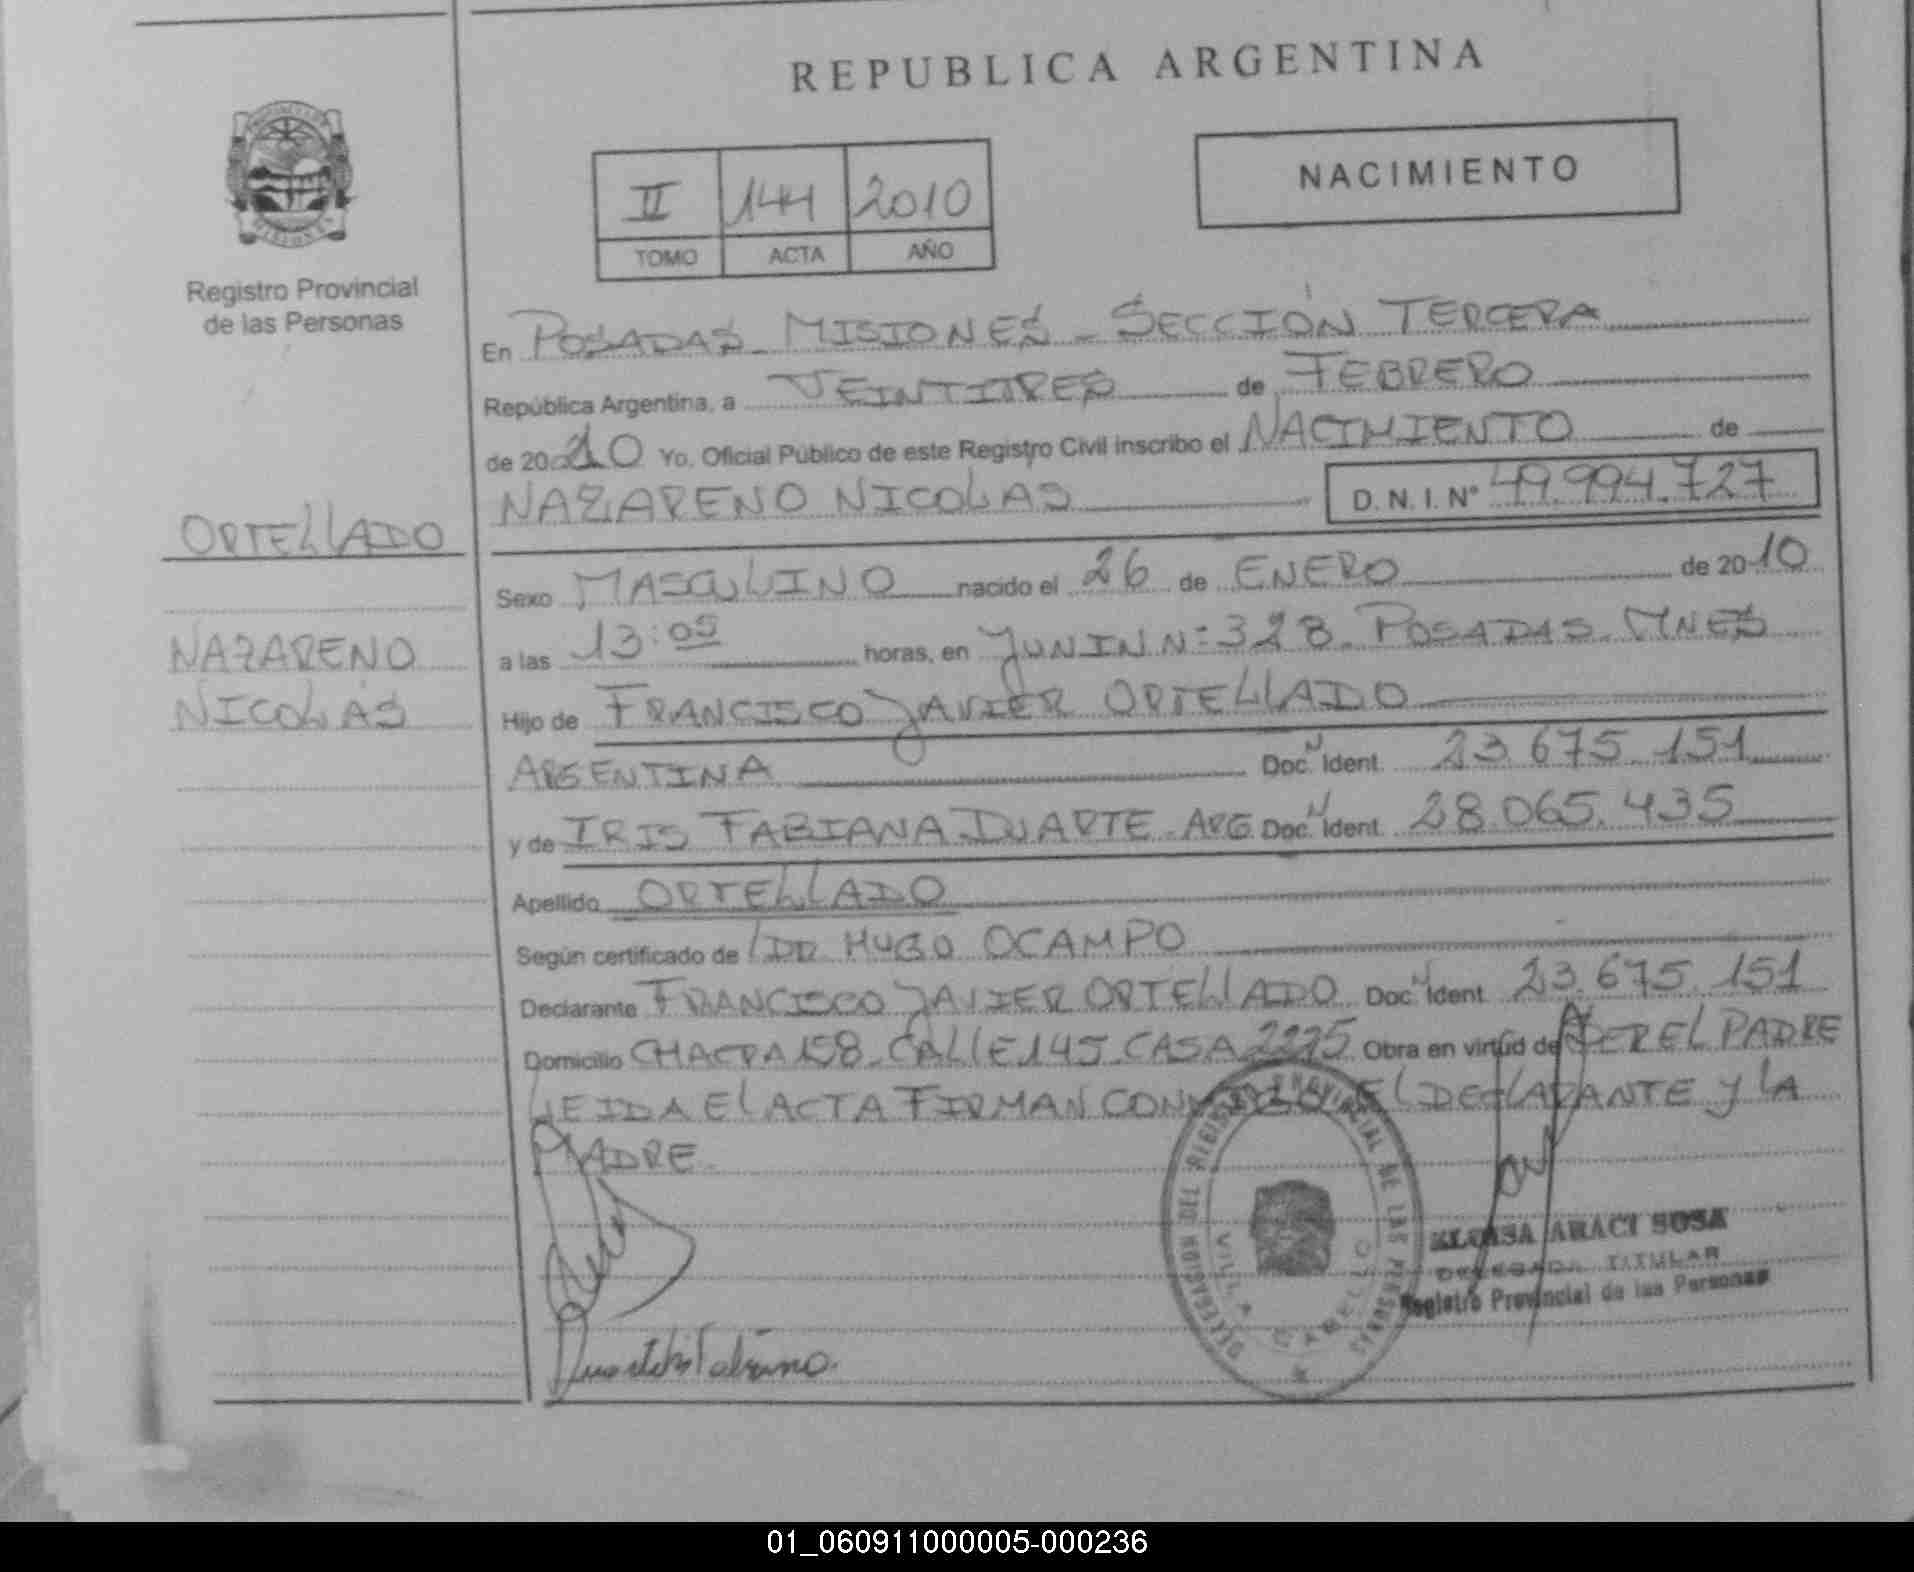 REPUBLICA ARGENTINA
NACIMIENTO
II 144 2010
TOMO ACTA AÑO
Registro Provincial
de las Personas
En POSADAS - MISIONES - SECCIÓN TERCERA
República Argentina, a VEINTITRES de FEBRERO
de 2010 Yo, Oficial Público de este Registro Civil inscribo el NACIMIENTO de
NAZARENO NICOLAS D. N. I. Nº 49.994.727
ORTELLADO
NAZARENO
NICOLAS
Sexo MASCULINO nacido el 26 de ENERO de 20 10
a las 13:05 horas, en JUNIN Nº 328 - POSADAS - MNES
Hijo de FRANCISCO JAVIER ORTELLADO
ARGENTINA Doc. N Ident. 23.675.151
y de IRIS FABIANA DUARTE - ARG. Doc. N Ident. 28.065.435
Apellido ORTELLADO
Según certificado de DR. HUGO OCAMPO
Declarante FRANCISCO JAVIER ORTELLADO Doc. N Ident. 23.675.151
Domicilio CHACRA 158 - CALLE 145 - CASA Obra en virtud de SER EL PADRE
LEIDA EL ACTA FIRMAN CONMIGO EL DECLARANTE Y LA
MADRE
DELEGACION DEL REGISTRO PROVINCIAL DE LAS PERSONAS
VILLA CABELLO
ELOISA ARACI SOSA
DELEGADA TITULAR
Registro Provincial de las Personas
01_060911000005-000236